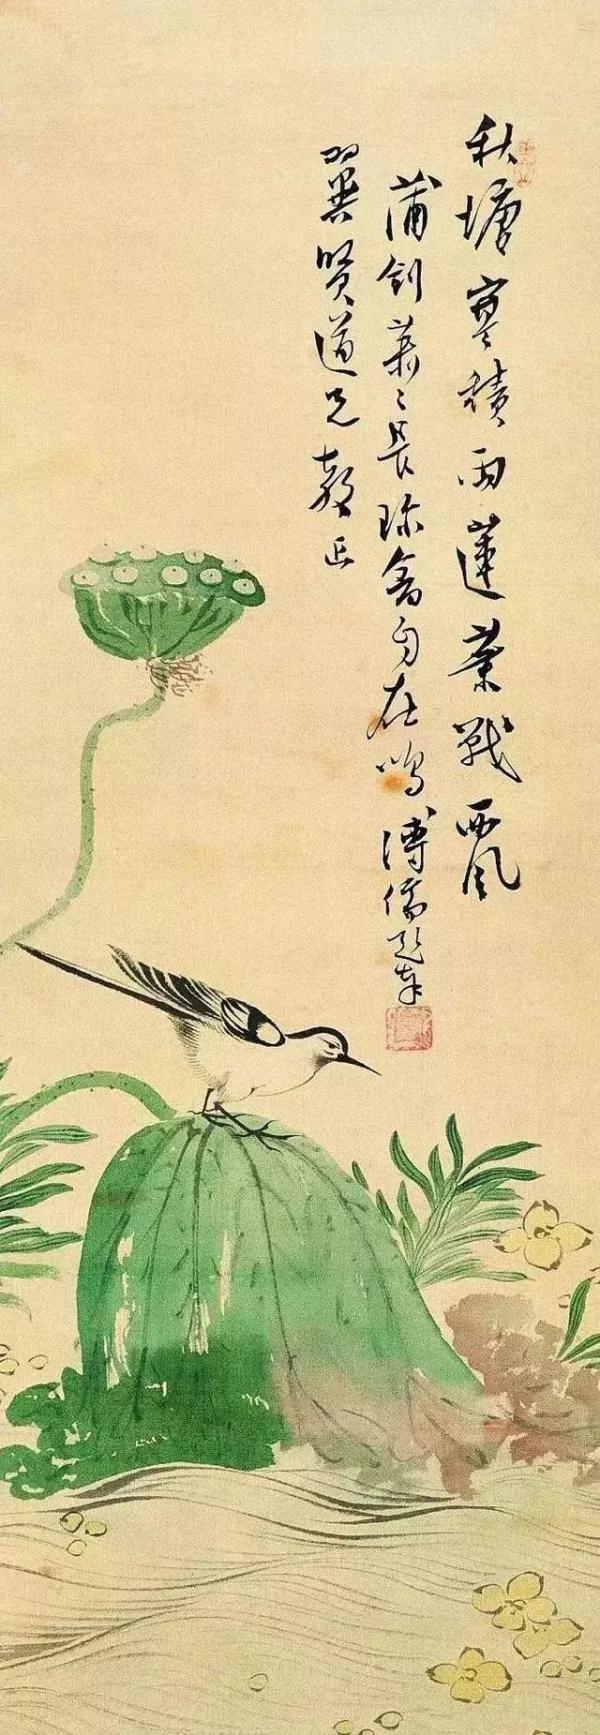 秋塘寒積雨蓮葉戰西風
蒲劍々長珍禽自在鳴溥儒題奉
翼賢道兄教正